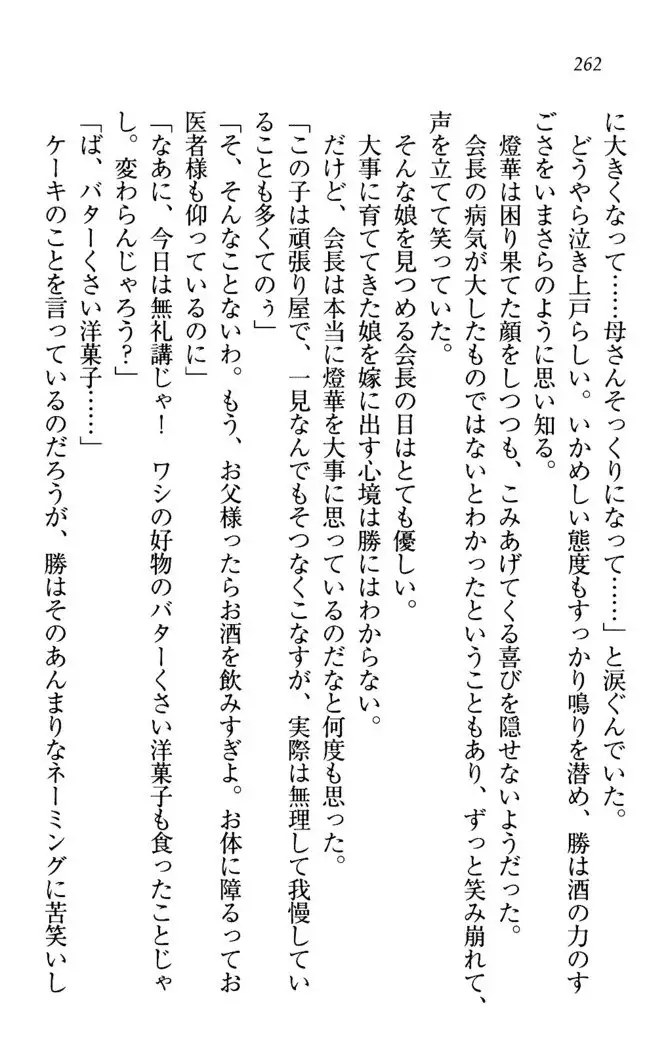 262
に大きくなって……母さんそっくりになって……」と涙ぐんでいた。
どうやら泣き上戸らしい。いかめしい態度もすっかり鳴りを潜め、勝は酒の力のす
ごさをいまさらのように思い知る。
燈華は困り果てた顔をしつつも、こみあげてくる喜びを隠せないようだった。
会長の病気が大したものではないとわかったということもあり、ずっと笑み崩れて、
声を立てて笑っていた。
そんな娘を見つめる会長の目はとても優しい。
大事に育ててきた娘を嫁に出す心境は勝にはわからない。
だけど、会長は本当に燈華を大事に思っているのだなと何度も思った。
「この子は頑張り屋で、一見なんでもそつなくこなすが、実際は無理して我慢してい
ることも多くてのぅ」
「そ、そんなことないわ。もう、お父様ったらお酒を飲みすぎよ。お体に障るってお
医者様も仰っているのに」
「なあに、今日は無礼講じゃ！　ワシの好物のバターくさい洋菓子も食ったことじゃ
し。変わらんじゃろう？」
「ば、バターくさい洋菓子……」
ケーキのことを言っているのだろうが、勝はそのあんまりなネーミングに苦笑いし